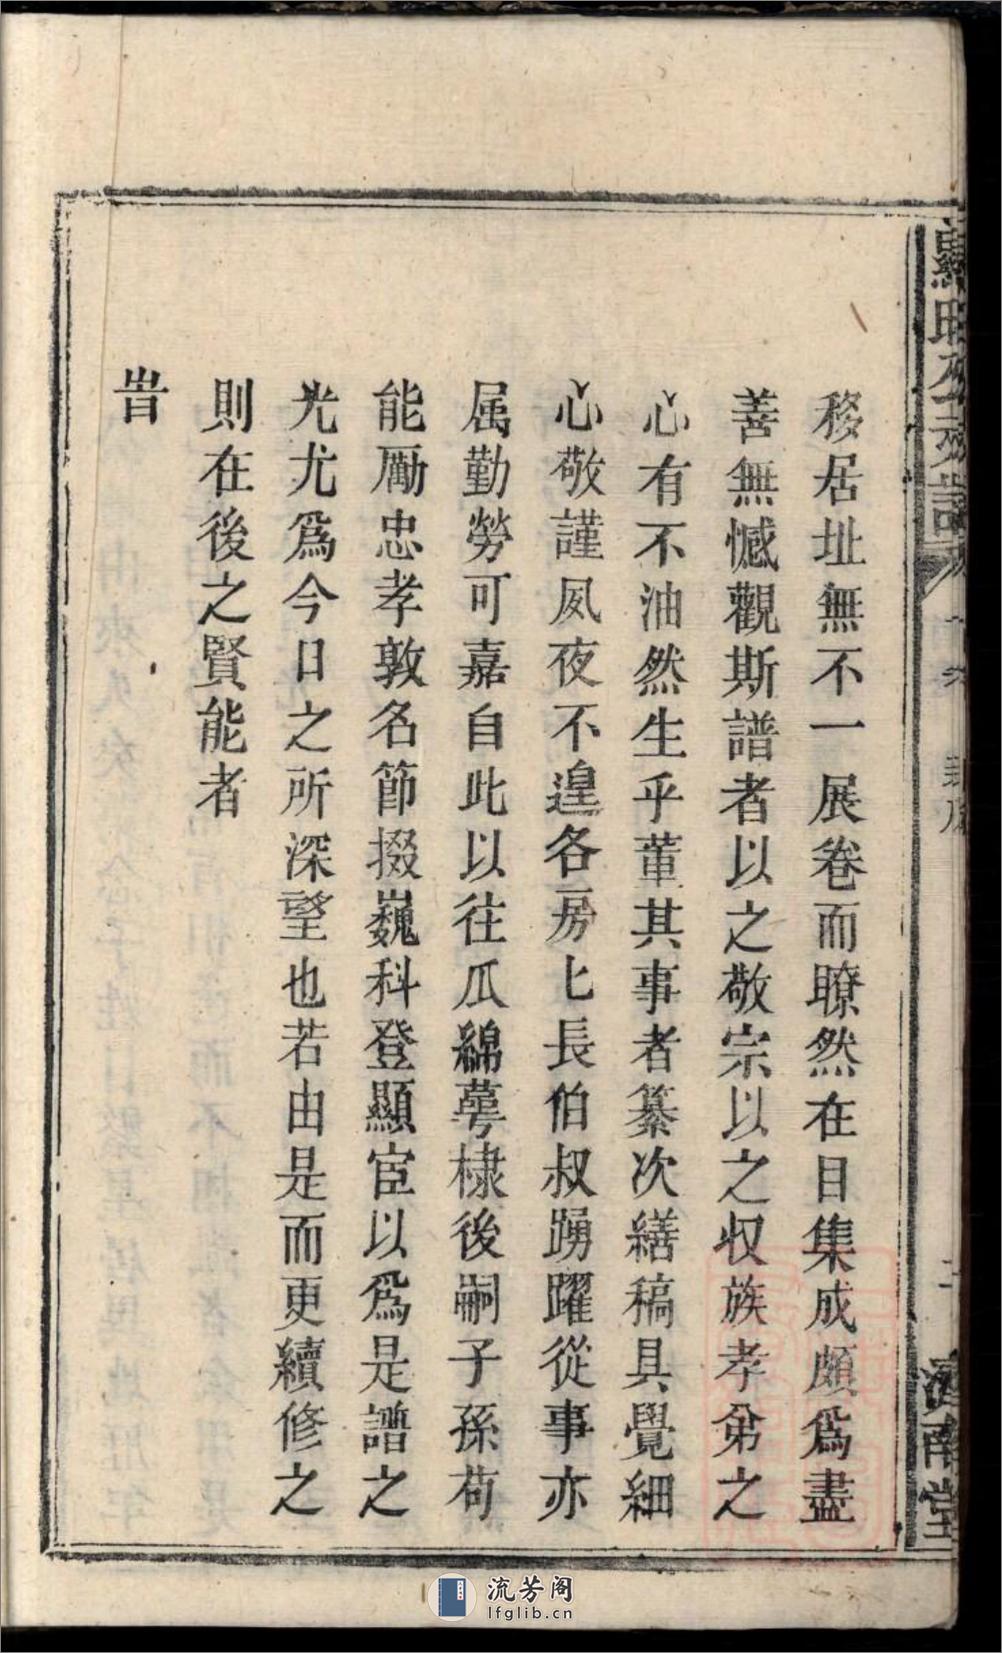 移居址無不一展卷而瞭然在目集成頗為盡
善無憾觀斯譜者以之敬宗以之収族孝弟之
心有不油然生乎董其事者纂次繕稿具覺細
心敬謹夙夜不遑各房匕長伯叔踴躍從事亦
属勤勞可嘉自此以徃瓜綿萼棣後嗣子孫苟
能勵忠孝敦名節掇巍科登顯宦以爲是譜之
光尤爲今日之所深望也若由是而更續修之
則在後之賢能者
旹
濟南堂
流芳阁
lfglib.cn